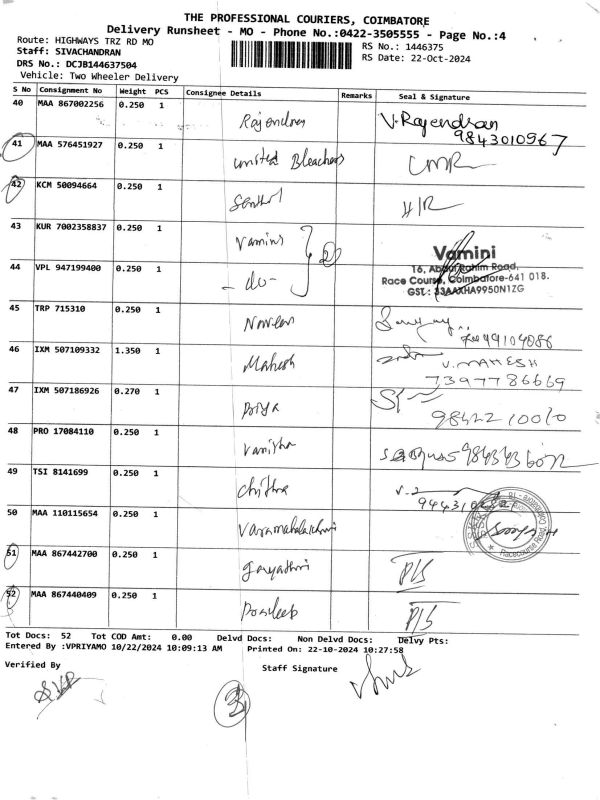 THE PROFESSIONAL COURIERS, COIMBATORE
Delivery Runsheet - MO - Phone No.:0422-3505555 - Page No.:4
Route: HIGHWAYS TRZ RD MO
RS No.: 1446375
Staff: SIVACHANDRAN
RS Date: 22-Oct-2024
DRS No.: DCJB144637504
Vehicle: Two Wheeler Delivery
S No Consignment No Weight PCS Consignee Details Remarks Seal & Signature
40 MAA 867002256 0.250 1 Rajendran V. Rajendran
9843010967
41 MAA 576451927 0.250 1 United Bleachers
42 KCM 50094664 0.250 1 Senthil
43 KUR 7002358837 0.250 1 Vamini
Vamini
44 VPL 947199400 0.250 1 - do -
16, Abdul Rahim Road,
Race Course, Coimbatore-641 018.
GST.: 33AAXHA9950N1ZG
45 TRP 715310 0.250 1 Naveen
46 IXM 507109332 1.350 1 Mahesh V. MAHESH
7397786669
47 IXM 507186926 0.270 1 Priya
9842210010
48 PRO 17084110 0.250 1 Vanitha
49 TSI 8141699 0.250 1 Chithra
50 MAA 110115654 0.250 1 Varamahalakshmi
51 MAA 867442700 0.250 1 Gayathri
52 MAA 867440409 0.250 1
Tot Docs: 52 Tot COD Amt: 0.00 Delvd Docs: Non Delvd Docs: Delvy Pts:
Entered By :VPRIYAMO 10/22/2024 10:09:13 AM Printed On: 22-10-2024 10:27:58
Verified By Staff Signature